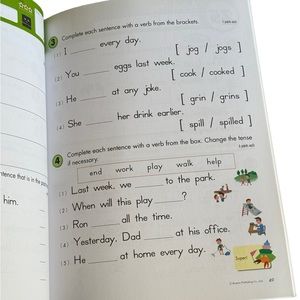 3 Complete each sentence with a verb from the brackets.
(1) I ______ every day. [ jog / jogs ]
(2) You ______ eggs last week. [ cook / cooked ]
(3) He ______ at any joke. [ grin / grins ]
(4) She ______ her drink earlier. [ spill / spilled ]
4 Complete each sentence with a verb from the box. Change the tense
if necessary.
end work play walk help
(1) Last week, we ______ to the park.
(2) When will this play ______ ?
(3) Ron ______ all the time.
(4) Yesterday, Dad ______ at his office.
(5) He ______ at home every day.
Super!
him.